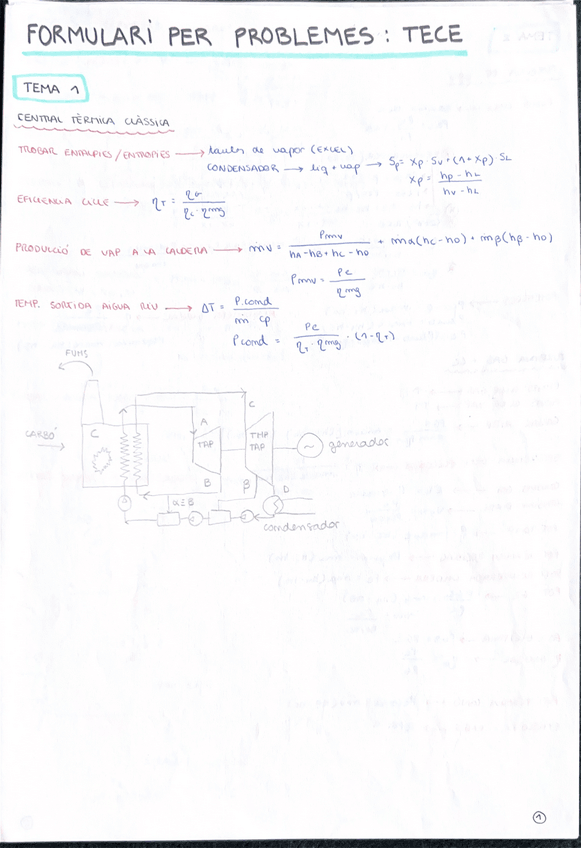 FORMULARI PER PROBLEMES: TECE
TEMA 1
CENTRAL TÈRMICA CLÀSSICA
TROBAR ENTALPIES/ENTROPIES → taules de vapor (EXCEL)
CONDENSADOR → liq + vap → Sp = Xp · Sv + (1+Xp) SL
Xp = (hp - hL) / (hv - hL)
EFICIENCIA CICLE → ηT = ηG / (ηC · ηmg)
PRODUCCIÓ DE VAP A LA CALDERA → ṁv = Pmv / (hA - hB + hC - hD) + mα(hC - hD) + ṁβ(hβ - hD)
Pmv = PE / ηmg
TEMP. SORTIDA AIGUA RIU → ΔT = P.cond / (ṁ cp)
Pcond = PE / (ηT · ηmg) · (1-ηT)
FUMS
CARBÓ
C
A
TAP
B
C
TMP
TAP
β
D
generador
α≡B
condensador
1